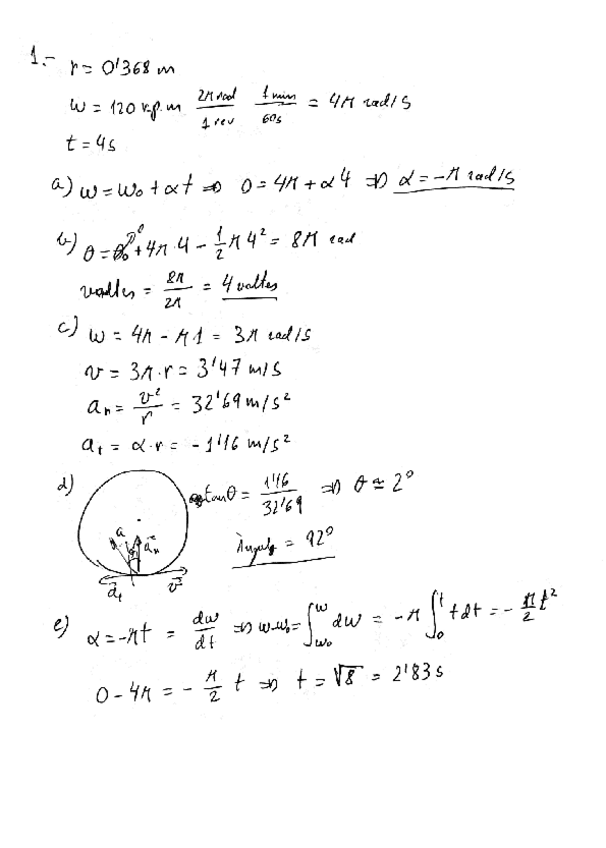 1.- r = 0'368 m
ω = 120 r.p.m 2π rad / 1 rev 1 min / 60s = 4π rad/s
t = 4s
a) ω = ω₀ + αt ⇒ 0 = 4π + α4 ⇒ α = -π rad/s
b) θ = θ₀⁰ + 4π·4 - 1/2 π 4² = 8π rad
vueltas = 8π/2π = 4 vueltas
c) ω = 4π - π1 = 3π rad/s
v = 3π·r = 3'47 m/s
aₙ = v²/r = 32'69 m/s²
aₜ = α·r = -1'16 m/s²
d) tanθ = 1'16/32'69 ⇒ θ ≃ 2°
a θ aₙ
Ángulo = 92°
aₜ v
e) α = -πt = dω/dt ⇒ ω-ω₀ = ∫ω₀^ω dω = -π ∫₀^t t dt = - π/2 t²
0 - 4π = - π/2 t ⇒ t = √8 = 2'83 s